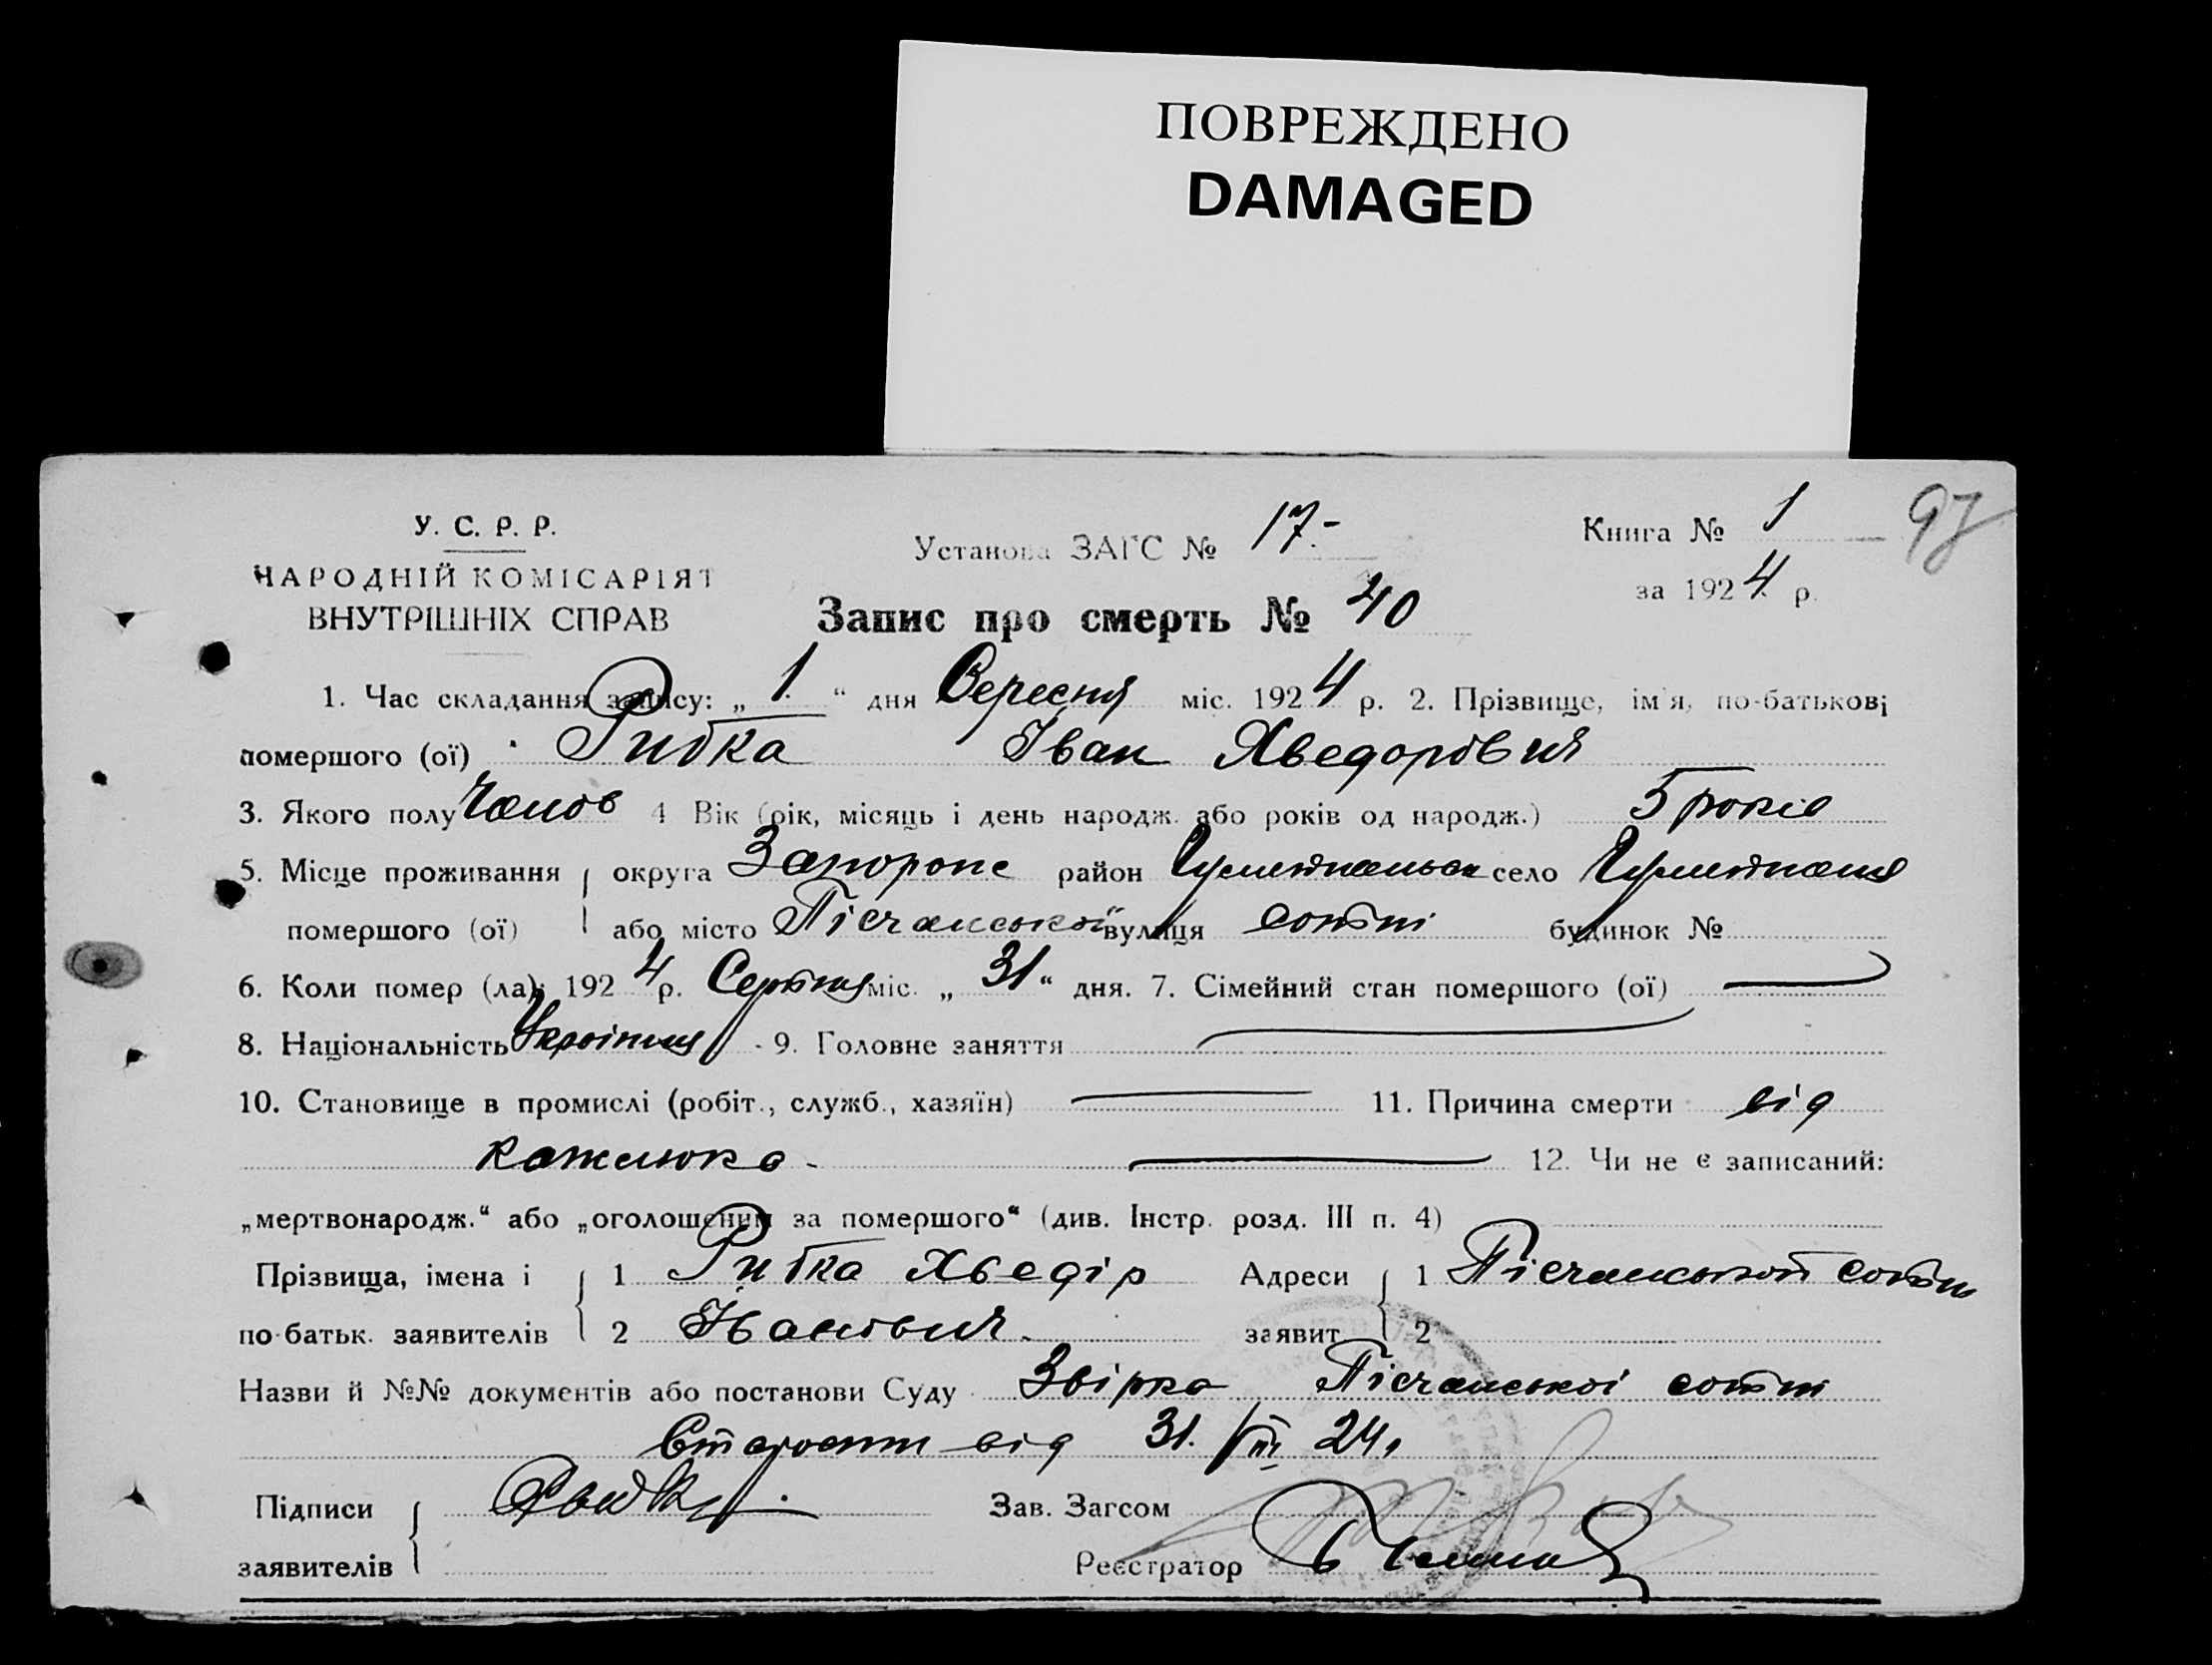 ПОВРЕЖДЕНО
DAMAGED
У. С. Р. Р.
НАРОДНІЙ КОМІСАРІЯТ
ВНУТРІШНІХ СПРАВ
Установа ЗАГС № 17.-
Книга № 1
97
за 1924 р.
Запис про смерть № 40
1. Час складання запису: „1." дня Вересня міс. 1924 р. 2. Прізвище, ім'я, по-батькові
помершого (ої) Рибка Іван Хведорович
3. Якого полу Чолов 4 Вік (рік, місяць і день народж. або років од народж.) 5 років
5. Місце проживання округа Запорожс район село
помершого (ої) або місто Пісчанської вулиця сотні будинок №
6. Коли помер (ла): 1924 р. Серпня міс. „31" дня. 7. Сімейний стан помершого (ої)
8. Національність 9. Головне заняття
10. Становище в промислі (робіт., служб., хазяїн) 11. Причина смерти від
кашлюка -
12. Чи не є записаний:
„мертвонародж." або „оголошений за помершого" (див. Інстр. розд. III п. 4)
Прізвища, імена і 1 Рибка Хведір Адреси 1 Пісчанської сотні
по-батьк. заявителів 2 Іванович. заявит. 2
Назви й №№ документів або постанови Суду Звірка Пісчанської сотні
від 31. VIII 24.
Підписи
Зав. Загсом
заявителів
Реєстратор